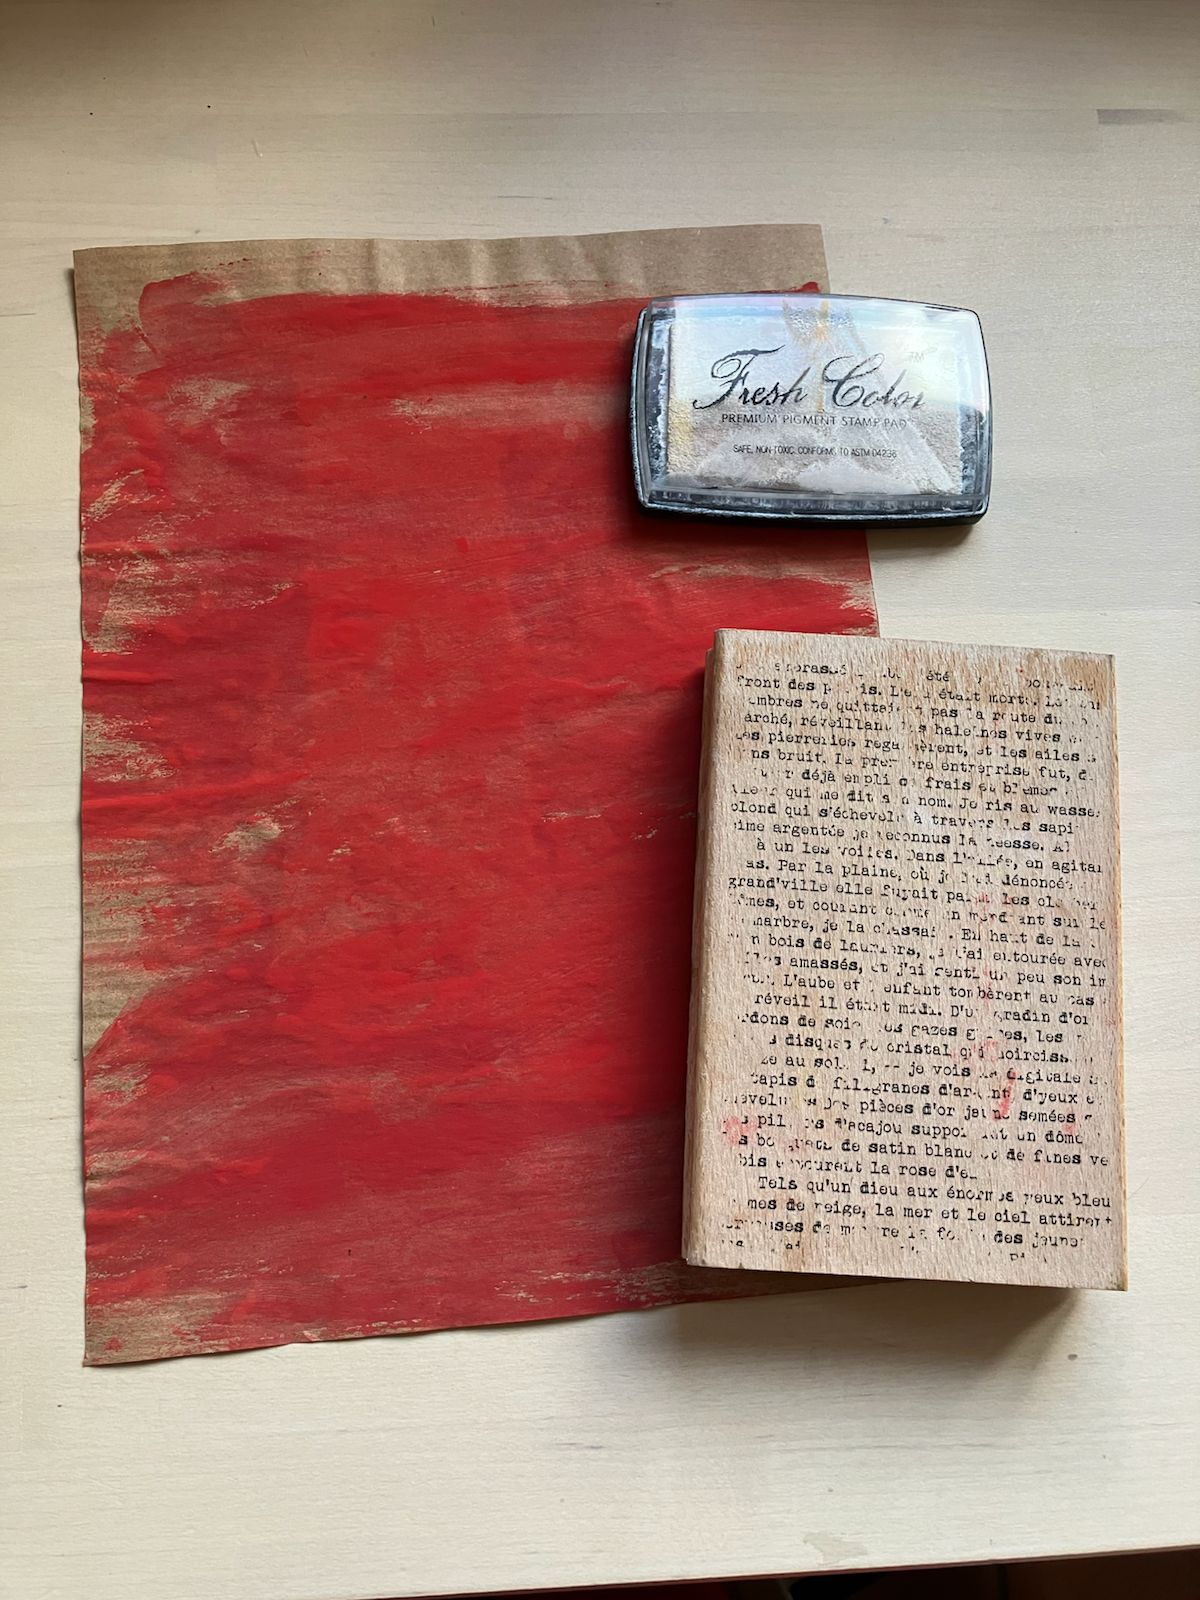 Fresh Color™
PREMIUM PIGMENT STAMP PAD
SAFE, NON-TOXIC. CONFORMS TO ASTM D4236
été
front des était morte.
ombres ne quittai pas la route du
arché, réveillant haleines vives
es pierreries rega rent, et les ailes
ns bruit. entreprise fut, d
déjà empli frais et
qui me dit nom. Je ris au wasser
blond qui s'échevela à travers sapi
ime argentée je reconnus la déesse. Al
à un les voiles. Dans l'allée, en agitan
as. Par la plaine, où je l'ai dénoncée
grand'ville elle fuyait parmi les clocher
ômes, et courant un mendiant sur le
marbre, je la chassai. En haut de la
n bois de lauriers, je l'ai entourée avec
iles amassés, et j'ai senti un peu son im
L'aube et l'enfant tombèrent au bas
réveil il était midi. D'un gradin d'or
rdons de soie, gazes grises, les
disques de cristal qui noirciss
au sol l, -- je vois la digitale
tapis de filigranes d'argent, d'yeux e
pièces d'or jaune semées
pil d'acajou suppo nt un dôme
bouquets de satin blanc et de fines ve
bis entourent la rose d'e
Tels qu'un dieu aux énormes yeux bleu
mes de neige, la mer et le ciel attirent
des jeune